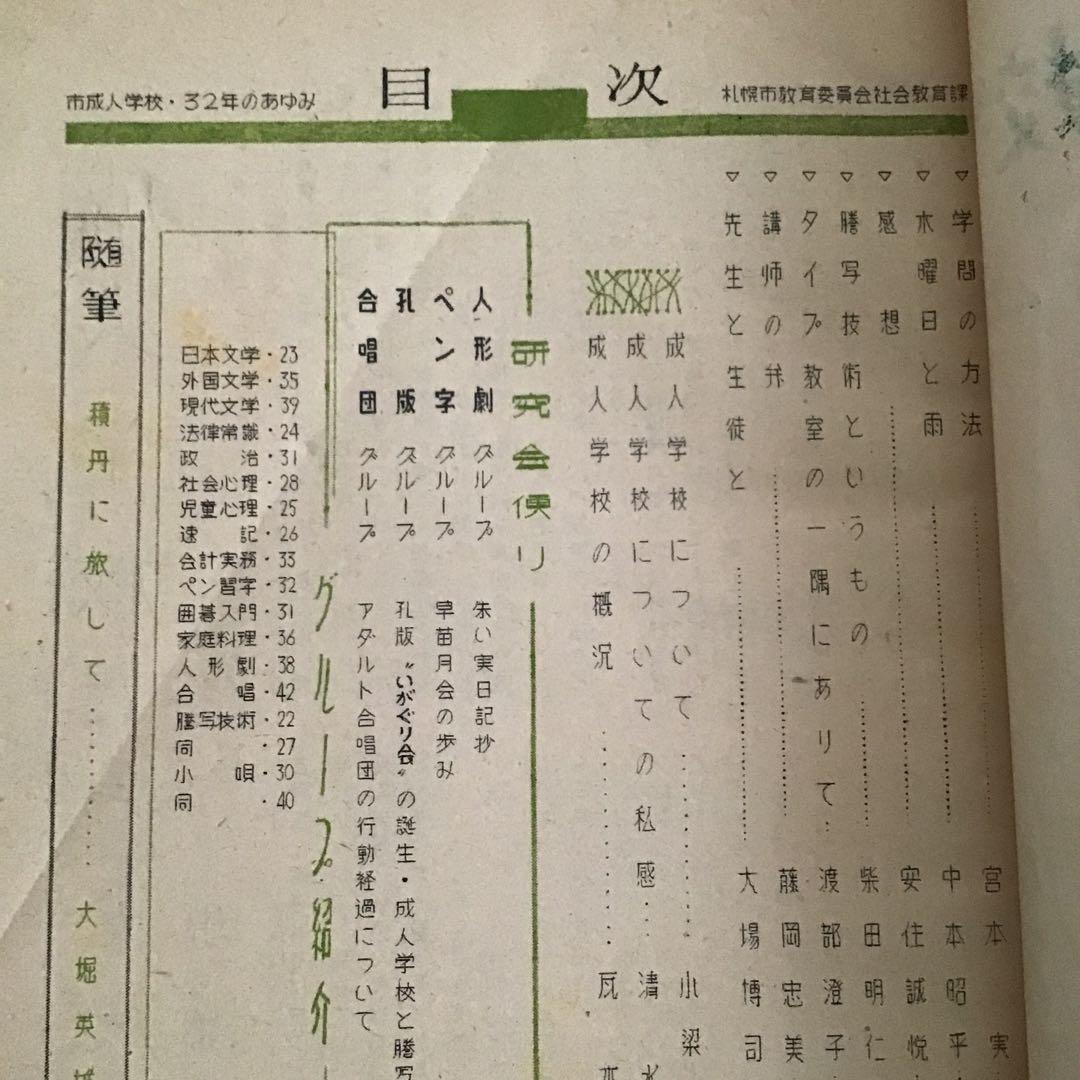 市成人学校・32年のあゆみ
目次
札幌市教育委員会社会教育課
▽学問の方法 宮本実
▽木曜日と雨 中本昭平
▽感想 安住誠悦
▽謄写技術というもの 柴田明仁
▽タイプ教室の一隅にありて 渡部澄子
▽講師の弁 藤岡忠美
▽先生と生徒と 大場博司
成人学校について 小梁
成人学校についての私感 清水
成人学校の概況
研究会便り
人形劇グループ 朱い実日記抄
ペン字グループ 早苗月会の歩み
孔版グループ 孔版〝いがぐり会〟の誕生・成人学校と謄写
合唱団グループ アダルト合唱団の行動経過について
グループ紹介
日本文学・23
外国文学・35
現代文学・39
法律常識・24
政治・31
社会心理・28
児童心理・25
速記・26
会計実務・33
ペン習字・32
囲碁入門・31
家庭料理・36
人形劇・38
合唱・42
謄写技術・22
同・27
小唄・30
同・40
随筆
積丹に旅して 大堀英